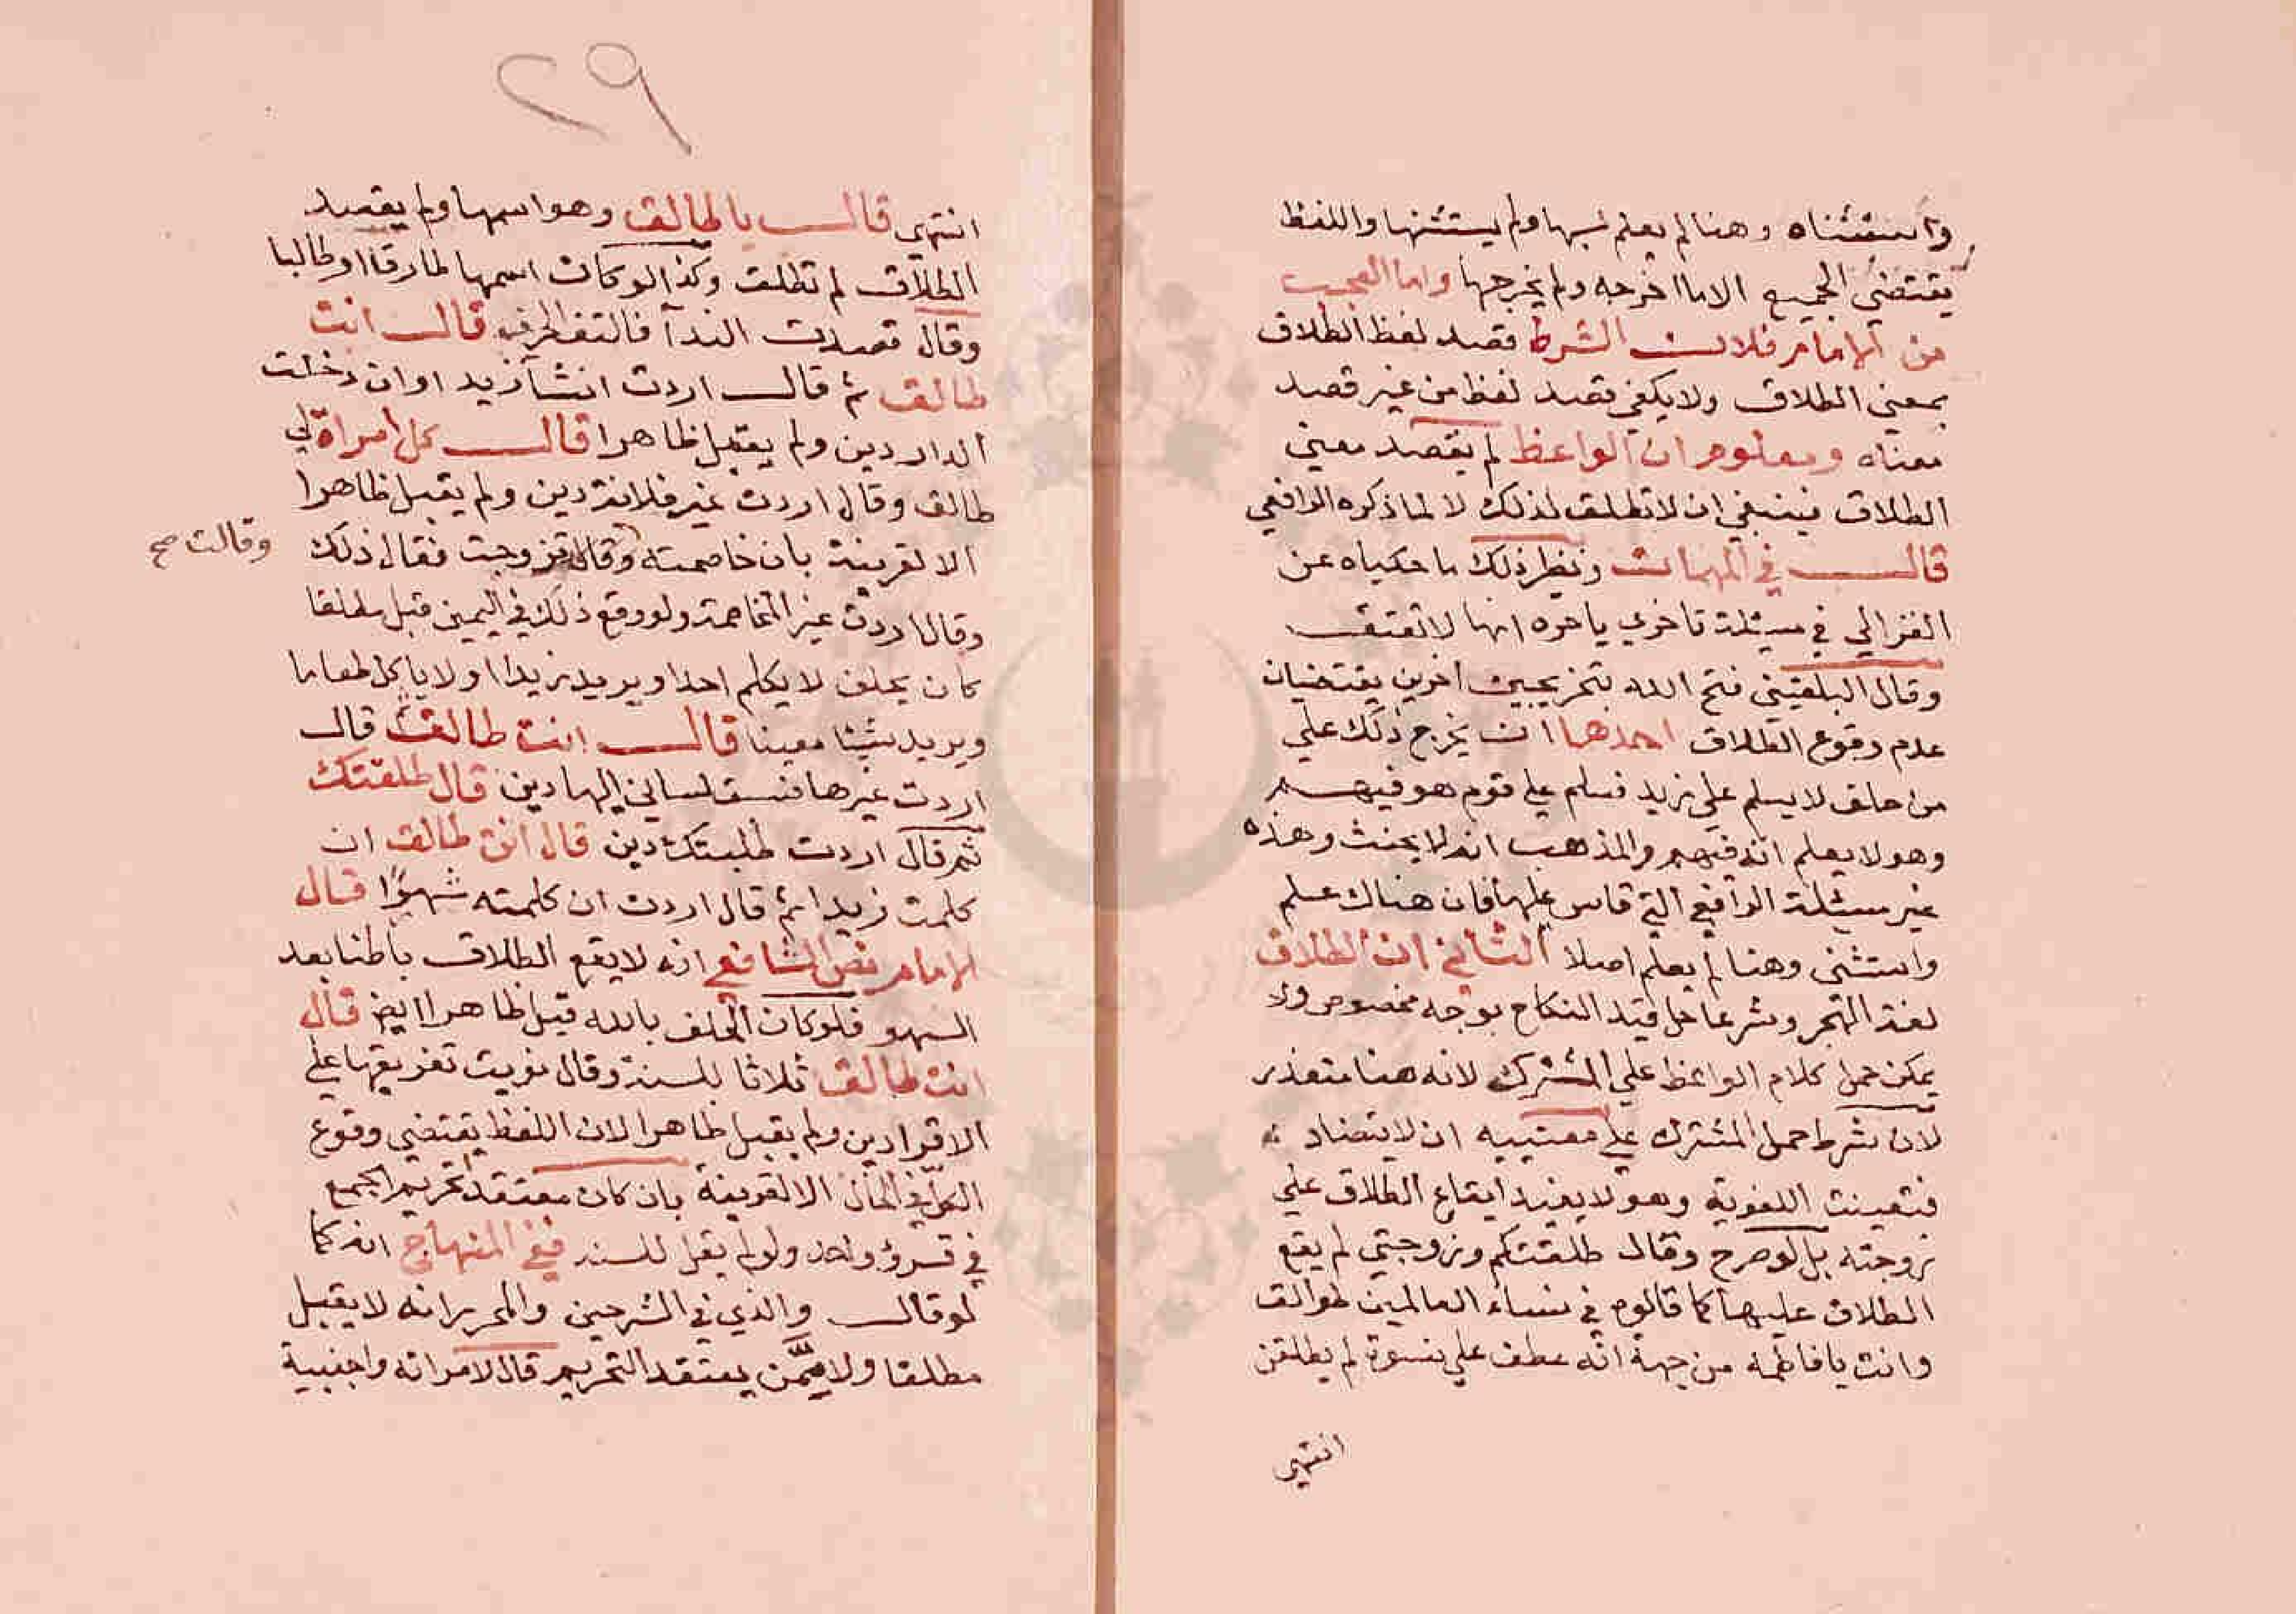 واستثناه وهنا لم يعلم بها ولم يستثنها واللفظ
يقتضي الجميع الا ما اخرجه ولم يخرجها واما العجيب
من الامام فلان الشرط قصد لفظ الطلاق
بمعني الطلاق ولا يكفي قصد لفظ من غير قصد
معناه ومعلوم ان الواعظ لم يقصد معني
الطلاق فينبغي ان لا تطلق لذلك لا لما ذكره الرافعي
قال في المهمات ونظير ذلك ما حكياه عن
الغزالي في مسئلة تاخري يا حره انها لا تعتق
وقال البلقيني فتح الله بتخريجين اخرين يقتضيان
عدم وقوع الطلاق احدهما ان يخرج ذلك علي
من حلف لا يسلم علي زيد فسلم علي قوم هو فيهم
وهو لا يعلم انه فيهم والمذهب انه لا يحنث وهذه
غير مسئلة الرافعي التي قاس عليها فان هناك علم
واستثني وهنا لم يعلم اصلا الثاني ان الطلاق
لغة الهجر وشرعا حل قيد النكاح بوجه مخصوص ولا
يمكن حمل كلام الواعظ علي المشترك لانه هنا متعذر
لان شرط حمل المشترك علي معنييه ان لا يتضاد
فتعينت اللغوية وهو لا يفيد ايقاع الطلاق علي
زوجته بل لو صرح وقال طلقتكم وزوجتي لم يقع
الطلاق عليها كما قالوه في نساء العالمين طوالق
وانت يا فاطمة من جهة انه عطف علي نسوة لم يطلقن
انتهي
٢٩
انتهي قال يا طالق وهو اسمها ولم يقصد
الطلاق لم تطلق وكذا لو كان اسمها طارقا او طالبا
وقال قصدت الندآ فالتف الحرف قال انت
طالق ثم قال اردت ان شآ زيد او ان دخلت
الدار دين ولم يقبل ظاهرا قال كل امراة لي
طالق وقال اردت غير فلانة دين ولم يقبل ظاهرا
الا لقرينة بان خاصمته وقال تزوجت فقال ذلك
وقالت صح
وقال اردت غير المخاصمة ولو وقع ذلك في اليمين قبل مطلقا
كان يحلف لا يكلم احدا ويريد زيدا او لا ياكل طعاما
ويريد شيئا معينا قال انت طالق قال
اردت غيرها فسبق لساني اليها دين قال طلقتك
ثم قال اردت طلبتك دين قال انت طالق ان
كلمت زيدا ثم قال اردت ان كلمته شهرا قال
الامام نص الشافعي انه لا يقع الطلاق باطنا بعد
الشهر فلو كان الحلف بالله قبل ظاهرا ايض قال
انت طالق ثلاثا للسنة وقال نويت تفريقها علي
الاقرا دين ولم يقبل ظاهرا لان اللفظ يقتضي وقوع
الكل في الحال الا لقرينة بان كان معتقد تحريم الجمع
في قرؤ واحد ولو لم يقل للسنة ففي المنهاج انه كما
لو قال والذي في الشرحين والمحرر انه لا يقبل
مطلقا ولا ممن يعتقد التحريم قال لامراته واجنبية